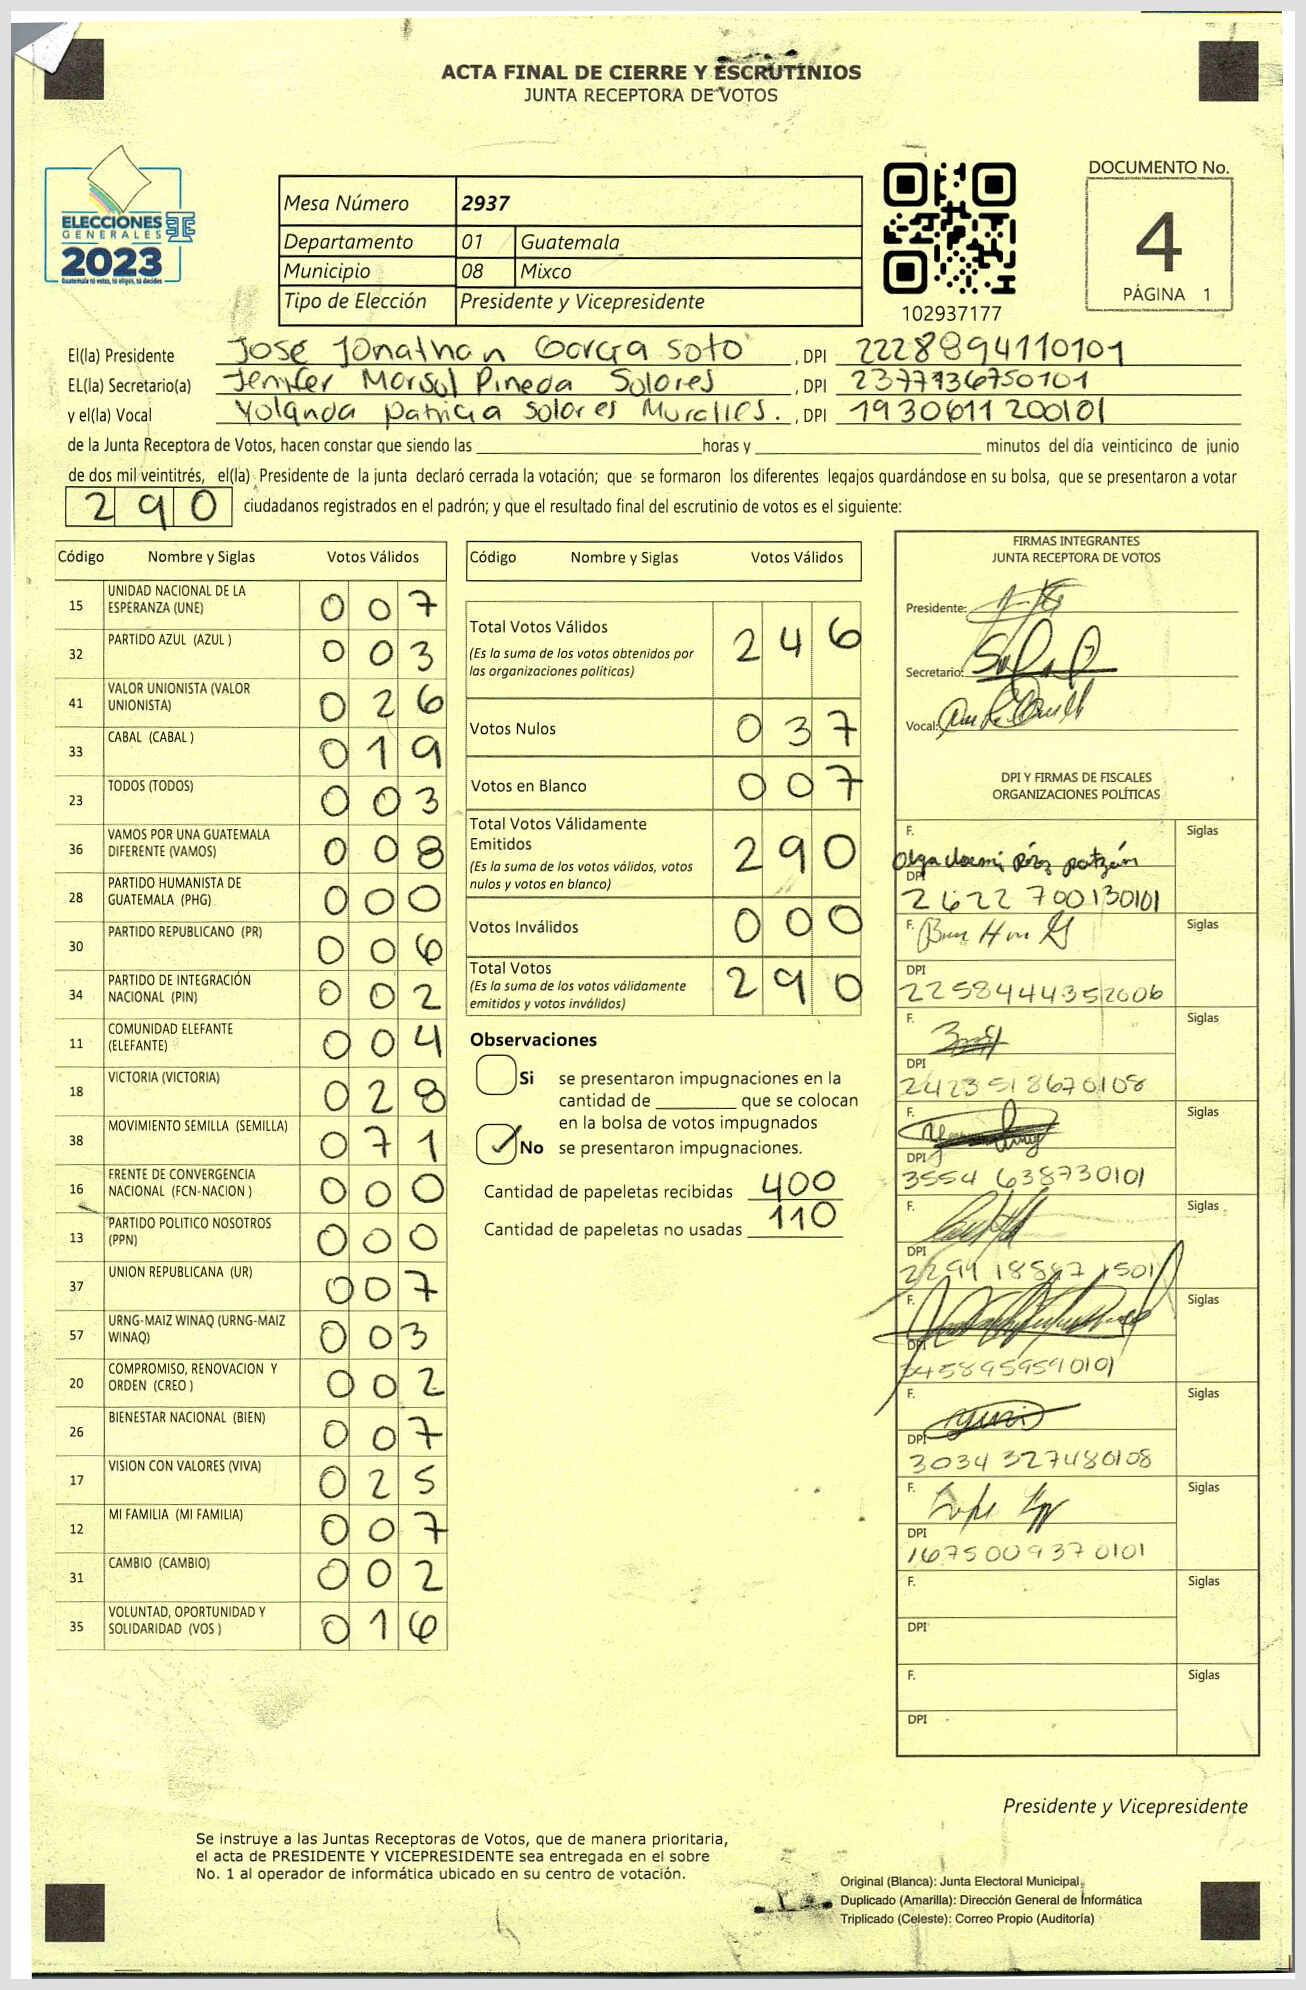 ACTA FINAL DE CIERRE Y ESCRUTINIOS
JUNTA RECEPTORA DE VOTOS
ELECCIONES
GENERALES
2023
Guatemala tú votas, tú eliges, tú decides
Mesa Número 2937
Departamento 01 Guatemala
Municipio 08 Mixco
Tipo de Elección Presidente y Vicepresidente
102937177
DOCUMENTO No.
4
PÁGINA 1
El(la) Presidente José Jonathan Garcia Soto, DPI 2228894110101
EL(la) Secretario(a) Jenifer Marisol Pineda Solores, DPI 2377736750101
y el(la) Vocal Yolanda Patricia Solores Muralles., DPI 1930611200101
de la Junta Receptora de Votos, hacen constar que siendo las horas y minutos del día veinticinco de junio
de dos mil veintitrés, el(la) Presidente de la junta declaró cerrada la votación; que se formaron los diferentes legajos guardándose en su bolsa, que se presentaron a votar
290 ciudadanos registrados en el padrón; y que el resultado final del escrutinio de votos es el siguiente:
Código Nombre y Siglas Votos Válidos
15 UNIDAD NACIONAL DE LA ESPERANZA (UNE) 007
32 PARTIDO AZUL (AZUL ) 003
41 VALOR UNIONISTA (VALOR UNIONISTA) 026
33 CABAL (CABAL ) 019
23 TODOS (TODOS) 003
36 VAMOS POR UNA GUATEMALA DIFERENTE (VAMOS) 008
28 PARTIDO HUMANISTA DE GUATEMALA (PHG) 000
30 PARTIDO REPUBLICANO (PR) 006
34 PARTIDO DE INTEGRACIÓN NACIONAL (PIN) 002
11 COMUNIDAD ELEFANTE (ELEFANTE) 004
18 VICTORIA (VICTORIA) 028
38 MOVIMIENTO SEMILLA (SEMILLA) 071
16 FRENTE DE CONVERGENCIA NACIONAL (FCN-NACION ) 000
13 PARTIDO POLITICO NOSOTROS (PPN) 000
37 UNION REPUBLICANA (UR) 007
57 URNG-MAIZ WINAQ (URNG-MAIZ WINAQ) 003
20 COMPROMISO, RENOVACION Y ORDEN (CREO ) 002
26 BIENESTAR NACIONAL (BIEN) 007
17 VISION CON VALORES (VIVA) 025
12 MI FAMILIA (MI FAMILIA) 007
31 CAMBIO (CAMBIO) 002
35 VOLUNTAD, OPORTUNIDAD Y SOLIDARIDAD (VOS ) 016
Código Nombre y Siglas Votos Válidos
Total Votos Válidos 246
(Es la suma de los votos obtenidos por
las organizaciones políticas)
Votos Nulos 037
Votos en Blanco 007
Total Votos Válidamente
Emitidos 290
(Es la suma de los votos válidos, votos
nulos y votos en blanco)
Votos Inválidos 000
Total Votos 290
(Es la suma de los votos válidamente
emitidos y votos inválidos)
Observaciones
Si se presentaron impugnaciones en la
cantidad de que se colocan
en la bolsa de votos impugnados
No se presentaron impugnaciones.
Cantidad de papeletas recibidas 400
Cantidad de papeletas no usadas 110
FIRMAS INTEGRANTES
JUNTA RECEPTORA DE VOTOS
Presidente:
Secretario:
Vocal:
DPI Y FIRMAS DE FISCALES
ORGANIZACIONES POLÍTICAS
F. Siglas
DPI 2622700130101
F. Siglas
DPI
2258444352606
F. Siglas
DPI
2423518670108
F. Siglas
DPI
3554638730101
F. Siglas
DPI
F. Siglas
DPI
3458959590101
F. Siglas
DPI
3034327480108
F. Siglas
DPI
1675009370101
F. Siglas
DPI
F. Siglas
DPI
Presidente y Vicepresidente
Se instruye a las Juntas Receptoras de Votos, que de manera prioritaria,
el acta de PRESIDENTE Y VICEPRESIDENTE sea entregada en el sobre
No. 1 al operador de informática ubicado en su centro de votación.
Original (Blanca): Junta Electoral Municipal
Duplicado (Amarilla): Dirección General de Informática
Triplicado (Celeste): Correo Propio (Auditoría)